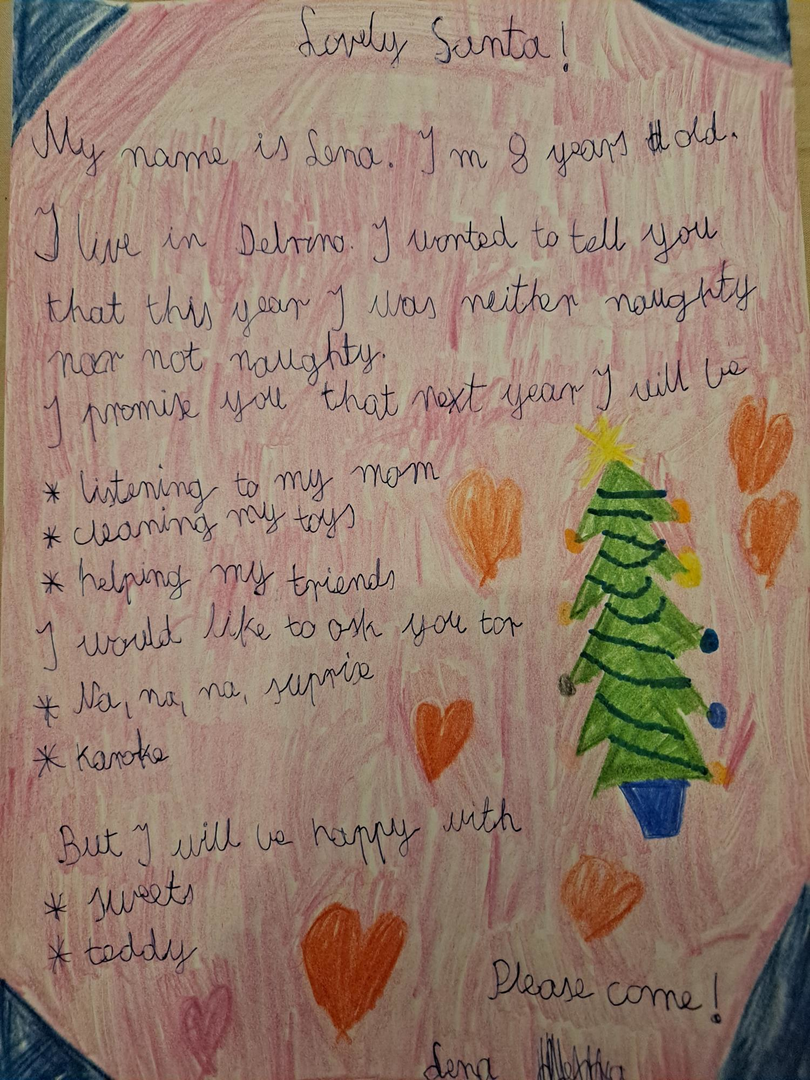 Lovely Santa!
My name is Lena. I'm 8 years old.
I live in Debrzno. I wonted to tell you
that this year I was neither naughty
nor not naughty.
I promise you that next year I will be
* listening to my mom
* cleaning my toys
* helping my friends
I would like to ask you for
* Na, na, na, suprise
* Karoke
But I will be happy with
* sweets
* teddy
Please come!
Lena